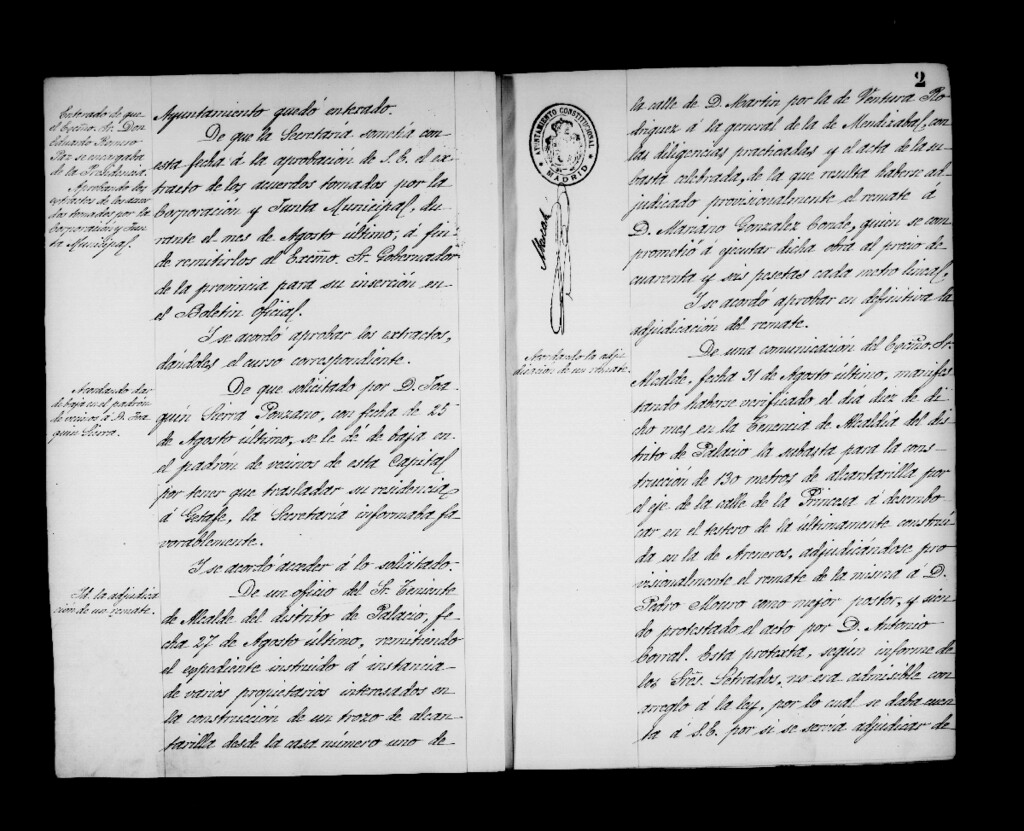 Enterado de que
el Excmo. Sr. Don
Eduardo Romero
Paz se encargaba
de la Presidencia.
Aprobando los
extractos de los acuer
dos tomados por la
Corporación y Jun
ta Municipal.
Ayuntamiento quedó enterado.
De que la Secretaría sometía con
esta fecha á la aprobación de S.E. el ex
tracto de los acuerdos tomados por la
Corporación y Junta Municipal, du
rante el mes de Agosto último, á fin
de remitirlos al Excmo. Sr. Gobernador
de la provincia para su inserción en
el Boletín oficial.
Y se acordó aprobar los extractos,
dándoles el curso correspondiente.
Acordando dar
de baja en el padrón
de vecinos á D. Joa
quín Sierra.
De que solicitado por D. Joa
quín Sierra Ponzano, con fecha de 25
de Agosto último, se le dé de baja en
el padrón de vecinos de esta Capital
por tener que trasladar su residencia
á Getafe, la Secretaría informaba fa
vorablemente.
Y se acordó acceder á lo solicitado.
Id. la adjudica
ción de un remate.
De un oficio del Sr. Teniente
de Alcalde del distrito de Palacio, fe
cha 27 de Agosto último, remitiendo
el expediente instruido á instancia
de varios propietarios interesados en
la construcción de un trozo de alcan
tarilla desde la casa número uno de
2
AYUNTAMIENTO CONSTITUCIONAL
MADRID
la calle de D. Martin por la de Ventura Ro
driguez á la general de la de Mendizabal, con
las diligencias practicadas y el acta de la su
basta celebrada, de la que resulta haberse ad
judicado provisionalmente el remate á
D. Mariano Gonzalez Conde, quien se com
prometió á ejecutar dicha obra al precio de
cuarenta y seis pesetas cada metro lineal.
Y se acordó aprobar en definitiva la
adjudicación del remate.
Acordando la adju
dicación de un remate.
De una comunicación del Excmo. Sr.
Alcalde, fecha 31 de Agosto último, manifes
tando haberse verificado el día diez de di
cho mes en la Tenencia de Alcaldía del dis
trito de Palacio la subasta para la cons
trucción de 130 metros de alcantarilla por
el eje de la calle de la Princesa á desembo
car en el testero de la ultimamente construi
da en la de Areneros, adjudicándose pro
visionalmente el remate de la misma á D.
Pedro Mouro como mejor postor, y sien
do protestado el acto por D. Antonio
Corral. Esta protesta, según informe de
los Sres. Letrados, no era admisible con
arreglo á la ley, por lo cual se daba cuen
ta á S.E. por si se servía adjudicar de